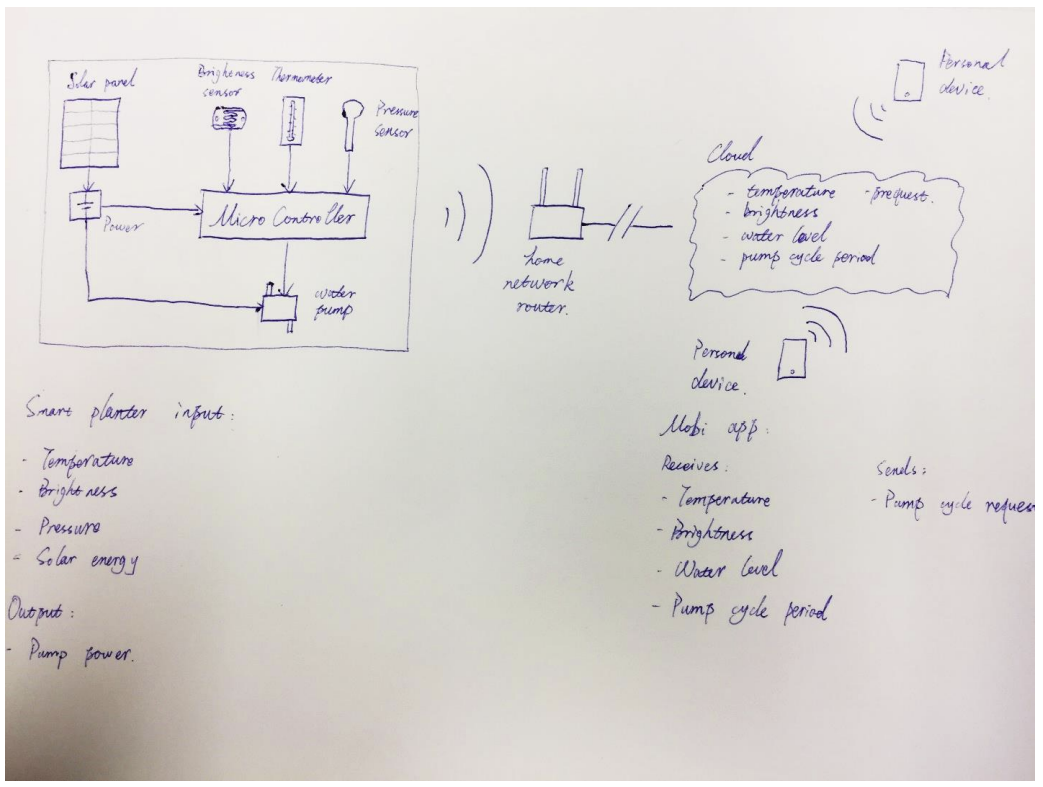 Solar panel
Brighteness
sensor
Thermometer
Pressure
sensor
Power
Micro Controller
water
pump
home
network
router.
Personal
device.
Cloud
- temperature - prequest.
- brightness
- water level
- pump cycle period
Personal
device.
Smart planter input:
- Temperature
- Brightness
- Pressure
- Solar energy
Output:
- Pump power.
Mobi app:
Receives:
- Temperature
- Brightness
- Water level
- Pump cycle period
Sends:
- Pump cycle reques